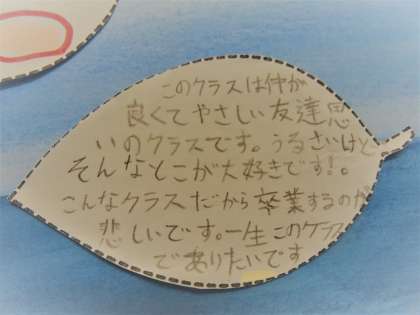 このクラスは仲が
良くてやさしい友達思
いのクラスです。うるさいけど、
そんなとこが大好きです!。
こんなクラスだから卒業するのが
悲しいです。一生このクラス
でありたいです